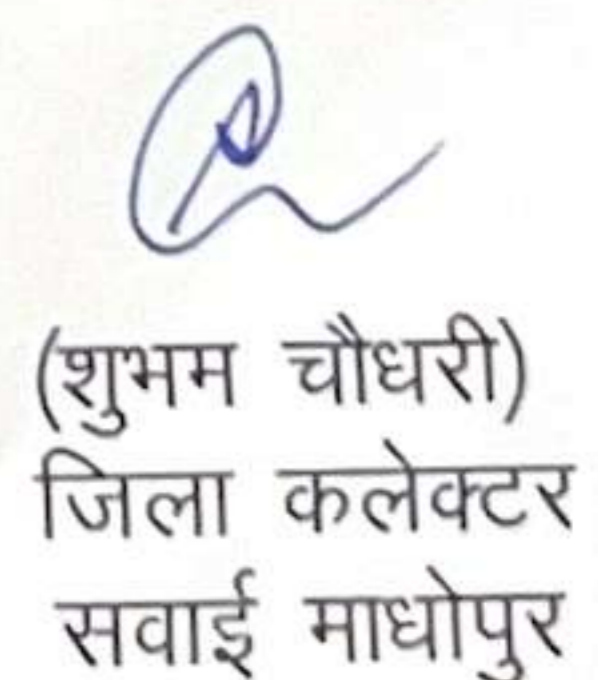 (शुभम चौधरी)
जिला कलेक्टर
सवाई माधोपुर